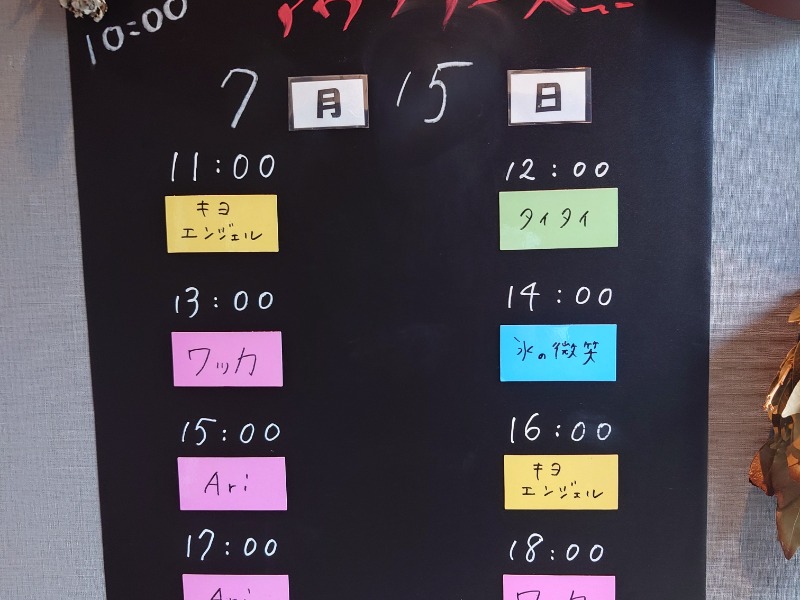 10:00
7月15日
11:00 12:00
キヨ
エンジェル
タイタイ
13:00 14:00
ワッカ
氷の微笑
15:00 16:00
Ari
キヨ
エンジェル
17:00 18:00
Ari